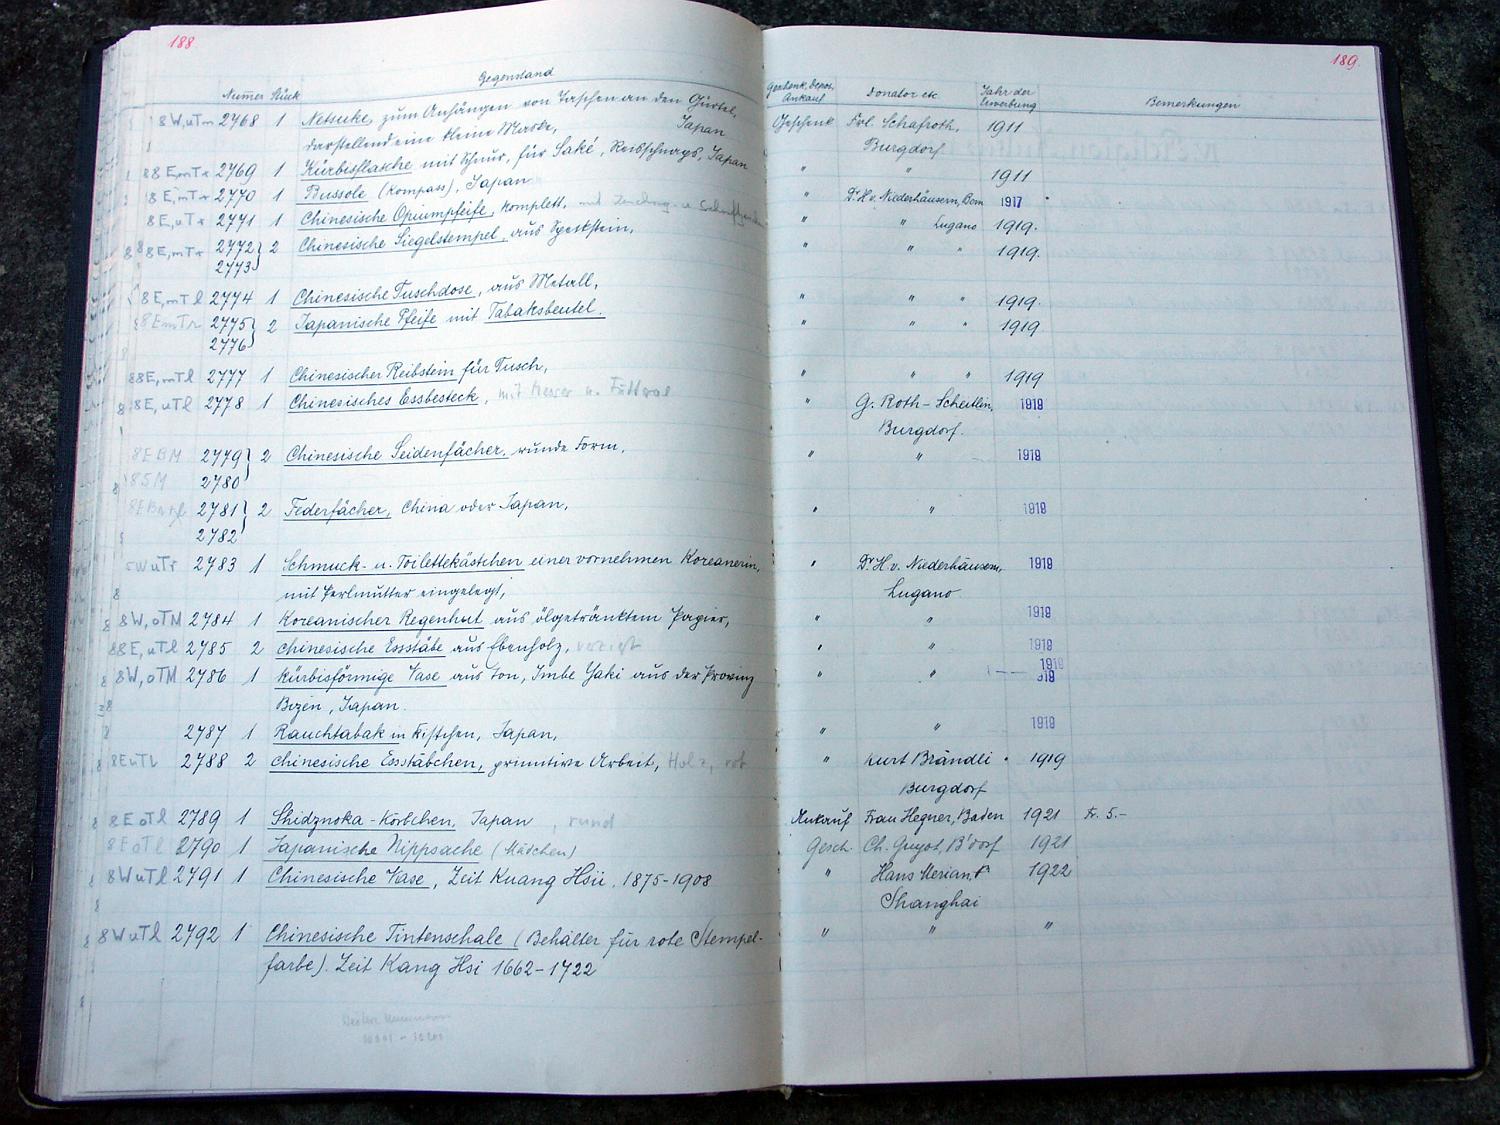 188
189.
Nummer Stück Gegenstand Geschenk, depos. Ankauf Donator etc Jahr der Erwerbung Bemerkungen
8W,uTm 2768 1 Netsuke, zum Anhängen von Taschen an den Gürtel, Geschenk Frl. Schafroth, 1911
darstellend eine kleine Maske, Japan Burgdorf
8E,mTr 2769 1 Kürbisflasche mit Schnur, für Saké, Reisschnaps, Japan " " 1911
8E,mTr 2770 1 Bussole (Kompass), Japan " Dr H. v. Niederhäusern, Bern 1917
8E,uTr 2771 1 Chinesische Opiumpfeife, komplett, " " Lugano 1919.
8E,mTr 2772 } 2 Chinesische Siegelstempel, aus Speckstein, " " " 1919.
2773
8E,mTl 2774 1 Chinesische Tuschdose, aus Metall, " " " 1919.
8EmTr 2775 } 2 Japanische Pfeife mit Tabaksbeutel. " " " 1919
2776
8E,mTl 2777 1 Chinesischer Reibstein für Tusch, " " " 1919
8E,uTl 2778 1 Chinesisches Essbesteck, mit Messer u. Futteral " G. Roth-Scheitlin, 1919
Burgdorf.
8EBM 2779 } 2 Chinesische Seidenfächer, runde Form, " " 1919
8SM 2780
2781 } 2 Federfächer, China oder Japan, " " 1919
2782
WuTr 2783 1 Schmuck- u. Toilettekästchen einer vornehmen Koreanerin, " Dr H. v. Niederhäusern, 1919
mit Perlmutter eingelegt, Lugano
8W,oTM 2784 1 Koreanischer Regenhut aus ölgetränktem Papier, " " 1919
8E,uTl 2785 2 chinesische Essstäbe aus Ebenholz, " " 1919
8W,oTM 2786 1 kürbisförmige Vase aus Ton, Imbe Yaki aus der Provinz " " 1919
919
Bizen, Japan.
2787 1 Rauchtabak in Kistchen, Japan, " " 1919
8EuTl 2788 2 chinesische Essstäbchen, primitive Arbeit, Holz, rot " Kurt Brändli 1919
Burgdorf
8EoTl 2789 1 Shidznoka-Körbchen, Japan , rund Ankauf Frau Hegner, Baden 1921 Fr. 5.-
8EoTl 2790 1 Japanische Nippsache (Mädchen) Gesch. Ch. Guyot, B'dorf 1921
8WuTl 2791 1 Chinesische Vase, Zeit Kuang Hsü, 1875-1908 " Hans Merian 1922
Shanghai
8WuTl 2792 1 Chinesische Tintenschale (Behälter für rote Stempel- " " "
farbe). Zeit Kang Hsi 1662-1722